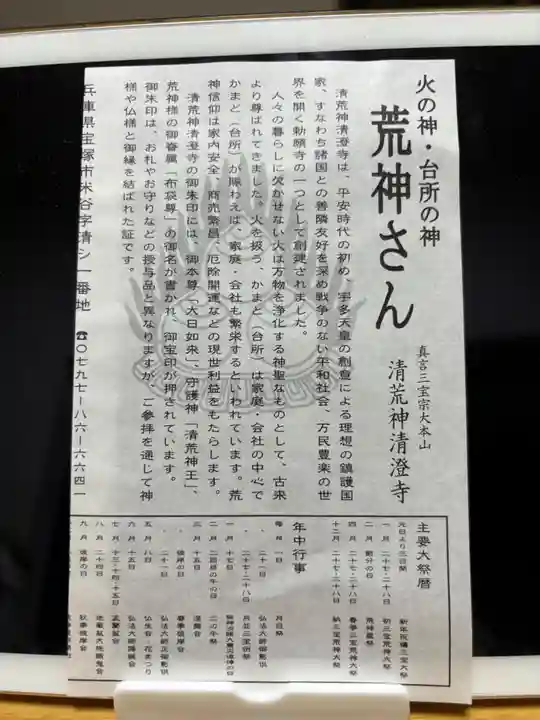 火の神・台所の神
荒神さん
真言三宝宗大本山
清荒神清澄寺
清荒神清澄寺は、平安時代の初め、宇多天皇の創意による理想の鎮護国
家、すなわち諸国との善隣友好を深め戦争のない平和社会、万民豊楽の世
界を開く勅願寺の一つとして創建されました。
人々の暮らしに欠かせない火は万物を浄化する神聖なものとして、古来
より尊ばれてきました。火を扱う、かまど（台所）は家庭・会社の中心で
かまど（台所）が賑わえば、家庭・会社も繁栄するといわれています。荒
神信仰は家内安全、商売繁昌、厄除開運などの現世利益をもたらします。
清荒神清澄寺の御朱印には、御本尊「大日如来」、守護神「清荒神王」、
荒神様の御眷属「布袋尊」の御名が書かれ、御宝印が押されています。
御朱印は、お札やお守りなどの授与品と異なりますが、ご参拝を通じて神
様や仏様と御縁を結ばれた証です。
兵庫県宝塚市米谷字清シ一番地 ☎〇七九七-八六-六六四一
主要大祭暦
元日より三日間 新年祝禱三宝大祭
一月 二十七・二十八日 初三宝荒神大祭
二月 節分の日 荒神星祭
四月 二十七・二十八日 春季三宝荒神大祭
十二月 二十七・二十八日 納三宝荒神大祭
年中行事
毎月 一日 月旦祭
〃 二十一日 弘法大師御影供
〃 二十七・二十八日 月並三宝御祭
一月 十七日
二月 二回目の午の日 二の午祭
二月 十五日 涅槃会
〃 彼岸の日 春季彼岸会
〃 二十一日 弘法大師正御影供
五月 八日 仏生会・花まつり
六月 十五日 弘法大師降誕会
七月 十三・十四・十五日 盂蘭盆会
八月 二十四日 地蔵盆大施餓鬼会
九月 彼岸の日 秋季彼岸会